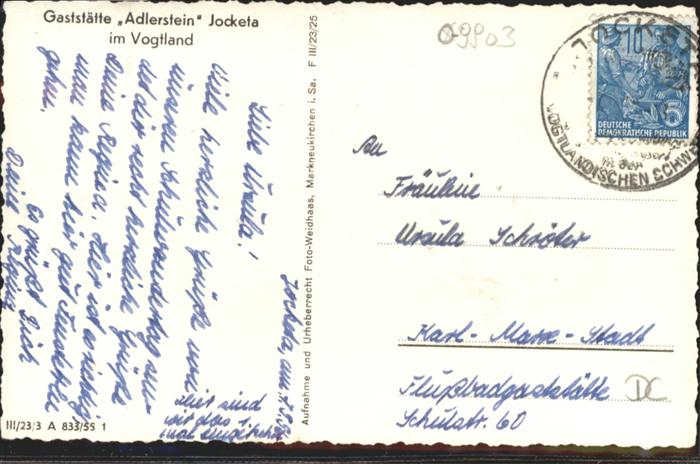 Gaststätte „Adlerstein" Jocketa
im Vogtland
09903
Jocketa, am
Liebe Ursula!
Viele herzliche Grüße von
unserem Schulwandertag
dir recht herzliche Grüße
deine Regina. Hier ist es richtig
man kann hier gut
gehen.
Es grüßt Dich
Deine Regina
Hier sind
wir das 1.
mal eingekehrt
III/23/3 A 833/55 1
Aufnahme und Urheberrecht Foto-Weidhaas, Markneukirchen i. Sa. F III/23/25
JOCKETA
in der
VOGTLÄNDISCHEN SCHWEIZ
10
5
DEUTSCHE
DEMOKRATISCHE REPUBLIK
An
Fräulein
Ursula Schröter
Karl-Marx-Stadt
Flußbadgaststätte
Schulstr. 60
DC